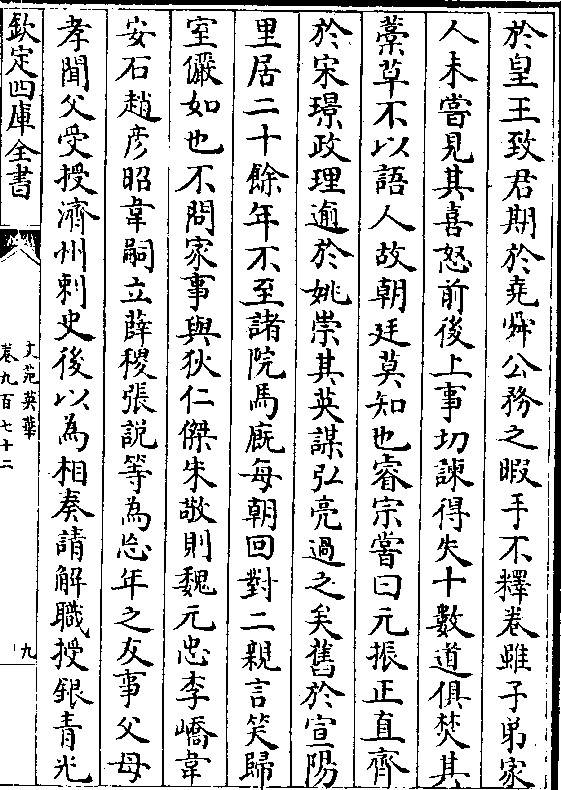 於皇王致君期於堯舜公務之暇手不釋卷雖子弟家
人未嘗見其喜怒前後上事切諫得失十數道俱焚其
藁草不以語人故朝廷莫知也睿宗嘗曰元振正直齊
於宋璟政理逾於姚崇其英謀弘亮過之矣舊於宣陽
里居二十餘年不至諸院馬廐每朝回對二親言笑歸
室儼如也不問家事與狄仁傑朱敬則魏元忠李嶠韋
安石趙彦昭韋嗣立薛稷張說等為忘年之友事父母
孝聞父受授濟州刺史後以為相奏請解職授銀青光
欽定四庫全書
文苑英華
卷九百七十二
九